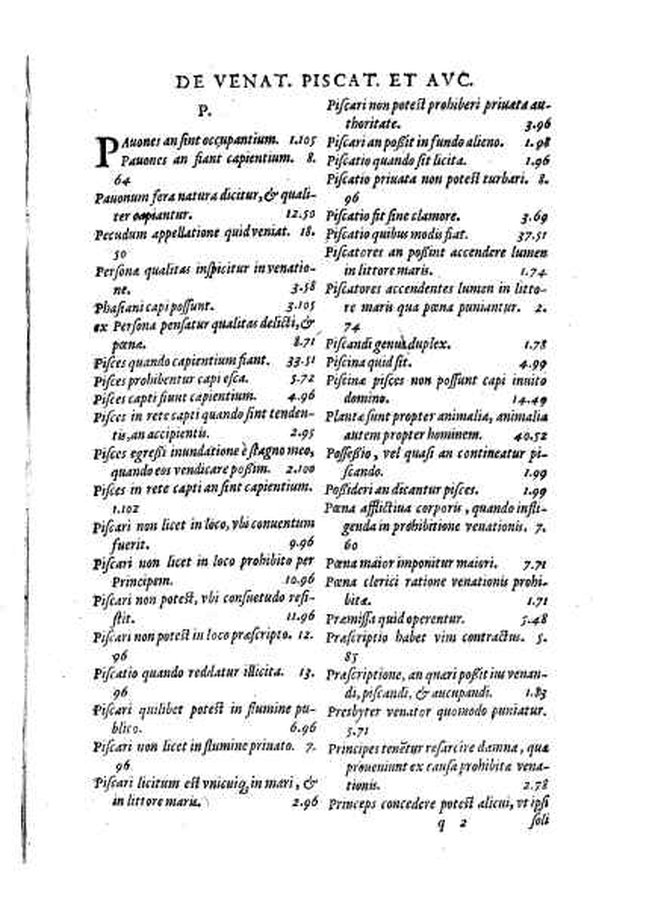 DE VENAT. PISCAT. ET AVC.
P.
PAuones an ſint occupantium. 1.105
Pauones an ſiant capientium. 8.
64
Pauonum fera natura dicitur, & quali-
ter capiantur. 12.50
Pecudum appellatione quid veniat. 18.
50
Perſonæ qualitas inſpicitur in venatio-
ne. 3.58
Phaſiani capi poſſunt. 3.105
ex Perſona penſatur qualitas delicti, &
pœnæ. 8.71
Piſces quando capientium fiant. 33.51
Piſces prohibentur capi eſca. 5.72
Piſces capti fiunt capientium. 4.96
Piſces in rete capti quando ſint tenden-
tis, an accipientis. 2.95
Piſces egreſſi inundatione è ſtagno meo,
quando eos vendicare poſſim. 2.100
Piſces in rete capti an ſint capientium.
1.102
Piſcari non licet in loco, vbi conuentum
fuerit. 9.96
Piſcari non licet in loco prohibito per
Principem. 10.96
Piſcari non poteſt, vbi conſuetudo reſi-
ſtit. 11.96
Piſcari non poteſt in loco præſcripto. 12.
96
Piſcatio quando reddatur illicita. 13.
96
Piſcari quilibet poteſt in flumine pu-
blico. 6.96
Piſcari non licet in flumine priuato. 7.
96
Piſcari licitum eſt vnicuiq, in mari, &
in littore maris. 2.96
Piſcari non poteſt prohiberi priuata au-
thoritate. 3.96
Piſcari an poſſit in fundo alieno. 1.98
Piſcatio quando ſit licita. 1.96
Piſcatio priuata non poteſt turbari. 8.
96
Piſcatio fit ſine clamore. 3.69
Piſcatio quibus modis fiat. 37.51
Piſcatores an poſſint accendere lumen
in littore maris. 1.74
Piſcatores accendentes lumen in litto-
re maris qua pœna puniantur. 2.
74
Piſcandi genus duplex. 1.78
Piſcina quid ſit. 4.99
Piſcinæ piſces non poſſunt capi inuito
domino. 14.49
Plantæ ſunt propter animalia, animalia
autem propter hominem. 40.52
Poſſeſſio, vel quaſi an contineatur pi-
ſcando. 1.99
Poſſideri an dicantur piſces. 1.99
Pœna afflictiua corporis, quando infli-
genda in prohibitione venationis. 7.
60
Pœna maior imponitur maiori. 7.71
Pœna clerici ratione venationis prohi-
bitæ. 1.71
Præmiſſa quid operentur. 5.48
Præſcriptio habet vim contractus. 5.
85
Præſcriptione, an quæri poſſit ius venan-
di, piſcandi, & aucupandi. 1.83
Presbyter venator quomodo puniatur.
5.71
Principes tenētur reſarcire damna, quæ
proueniunt ex cauſa prohibitæ vena-
tionis. 2.78
Princeps concedere poteſt alicui, vt ipſi
q 2 ſoli